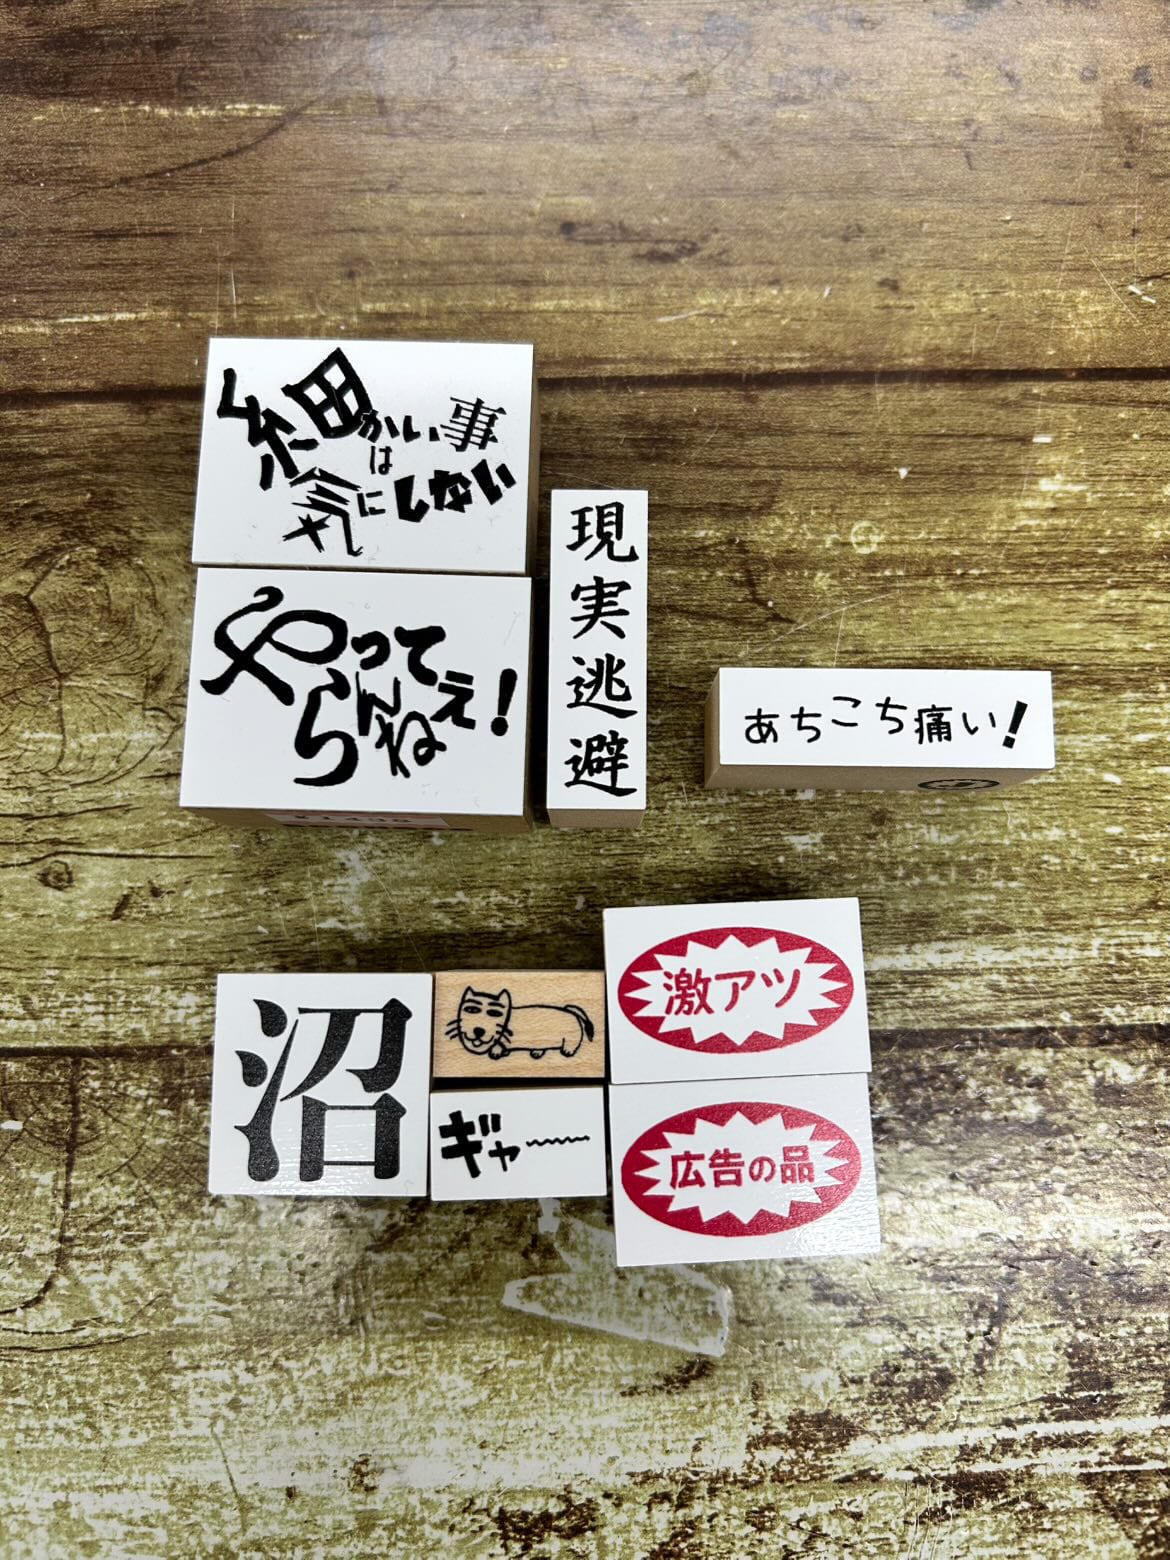 細かい事
は
気にしない
やってらんねえ!
現実逃避
あちこち痛い!
沼
ギャ〜
激アツ
広告の品